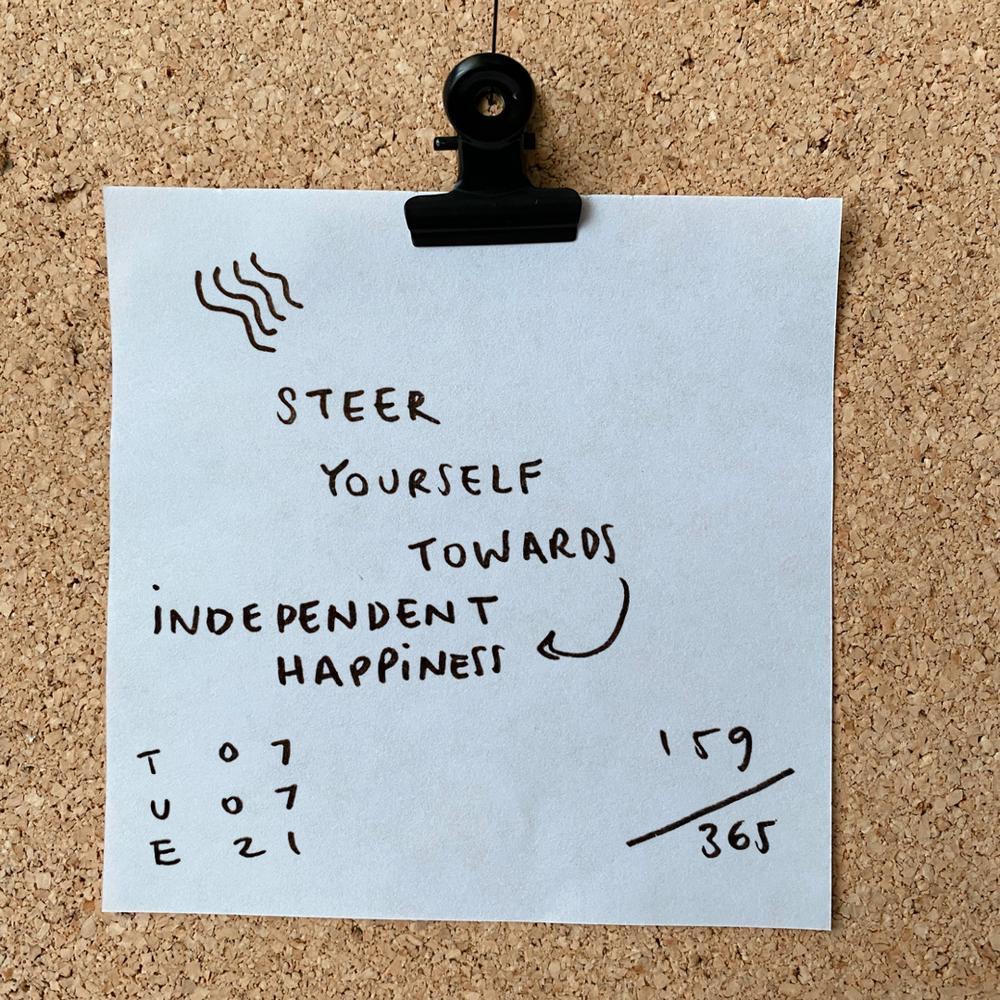 STEER
YOURSELF
TOWARDS
iNDEPENDENT
HAPPiNESS
T 07
U 07
E 21
159
365